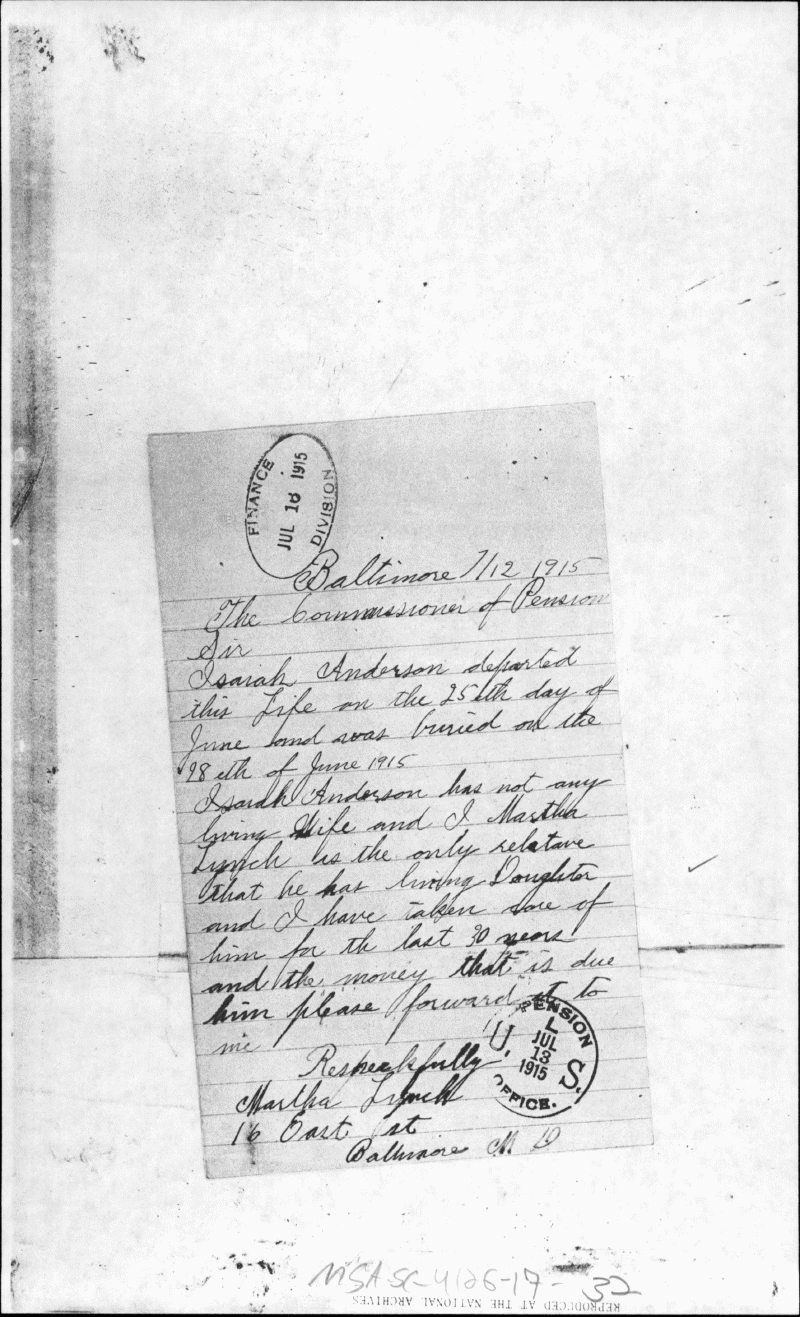 FINANCE
JUL 16 1915
DIVISION
Baltimore 7/12 1915
The Commissioner of Pension
Sir
Isaiah Anderson departed
this Life on the 25 eth day of
June and was buried on the
28 eth of June 1915
Isaiah Anderson has not any
living Wife and I Martha
Lynch is the only relative
that he has living Doughter
and I have taken care of
him for th last 30 years
and the money that is due
him please forward it to
me
Respeckfully
Martha Lynch
16 East st
Baltimore M D
PENSION
L
JUL
13
1915
U. S.
OFFICE.
MSA SC 4126-17-32
REPRODUCED AT THE NATIONAL ARCHIVES